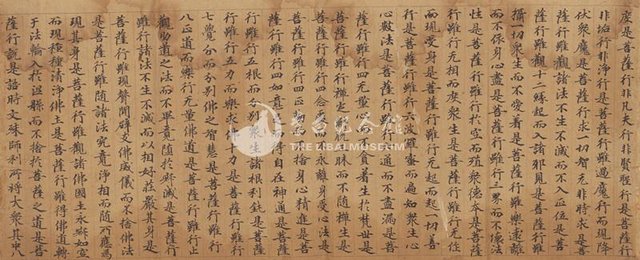 度是菩薩行非凡夫行非賢聖行是菩薩行
非垢行非淨行是菩薩行雖過魔行而現降
伏眾魔是菩薩行求一切智无非時求是菩
薩行雖觀諸法不生而不入正位是菩
薩行雖觀十二緣起而入諸邪見是菩薩行雖
攝一切眾生而不愛著是菩薩行雖樂遠離
而不依身心盡是菩薩行雖行三界而不壞法
性是菩薩行雖行於空而殖眾德本是菩薩
行雖行无相而度眾生是菩薩行雖行无作
而現受身是菩薩行雖行无起而起一切善
行是菩薩行雖行六波羅蜜而遍知眾生心
心數法是菩薩行雖行六通而不盡漏是菩
薩行雖行四无量心而不貪著生於梵世是
菩薩行雖行禪定解脫三昧而不隨禪生是
菩薩行雖行四念處而不永離身受心法是
菩薩行雖行四正勤而不捨身心精進是菩
薩行雖行四如意足而得自在神通是菩薩
行雖行五根而分別眾生諸根利鈍是菩薩
行雖行五力而樂求佛十力是菩薩行雖行
七覺分而分別佛之智慧是菩薩行雖行
八正道而樂行无量佛道是菩薩行雖行止
觀助道之法而不畢竟墮於寂滅是菩薩行
雖行諸法不生不滅而以相好莊嚴其身是
菩薩行雖現聲聞辟支佛威儀而不捨佛法
是菩薩行雖隨諸法究竟淨相而隨所應為
現其身是菩薩行雖觀諸佛國土永寂如空
而現種種清淨佛土是菩薩行雖得佛道轉
于法輪入於涅槃而不捨於菩薩之道是菩
薩行說是語時文殊師利所將大眾其中
THE ZIBAI MUSEUM